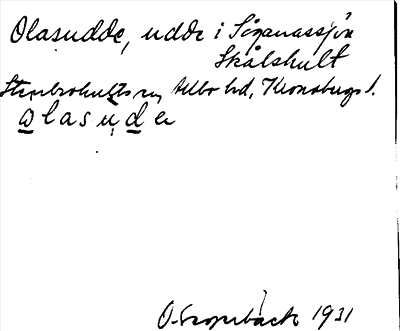 Olasudde, udde i Såganässjön
Skålshult
Stenbrohults sn, Allbo hd, Kronobergs l.
olasuder
1931